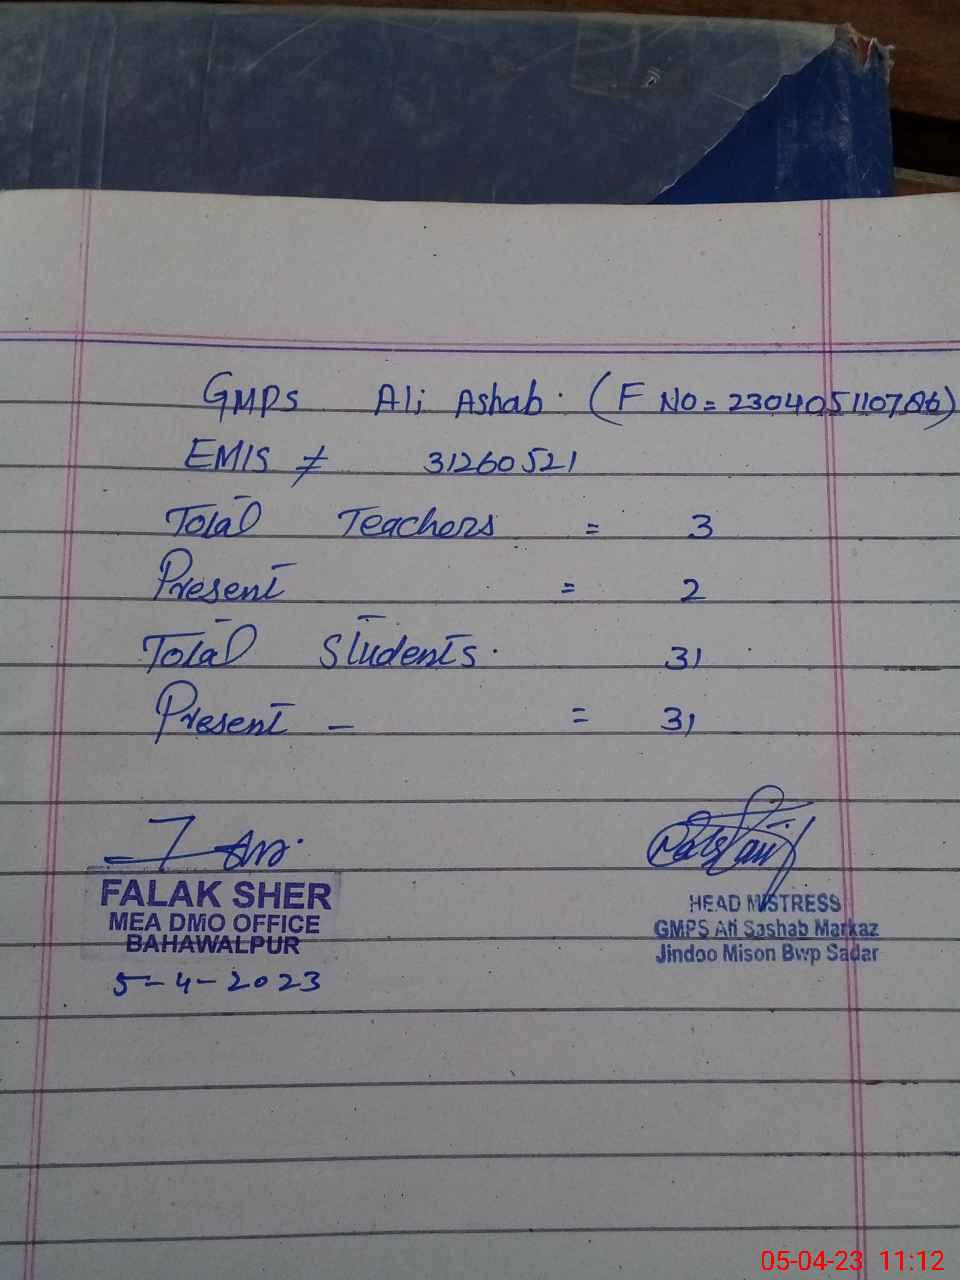 GMPS Ali Ashab. (F No = 230405110786)
EMIS ≠ 31260521
Total Teachers = 3
Present = 2
Total Students. 31
Present - = 31
FALAK SHER
MEA DMO OFFICE
BAHAWALPUR
5-4-2023
HEAD MISTRESS
GMPS Ali Sashab Markaz
Jindoo Mison Bwp Sadar
05-04-23 11:12